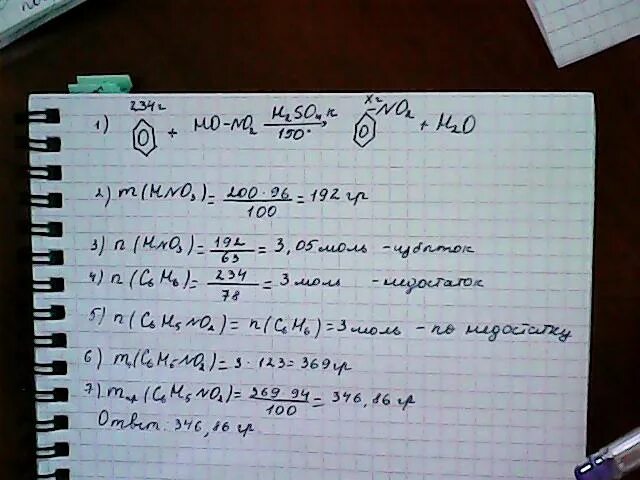 234 г
x г
1) ⌬ + HO-NO₂ H₂SO₄ к 150° → ⌬-NO₂ + H₂O
2) m(HNO₃) = 200·96/100 = 192 гр
3) n(HNO₃) = 192/63 = 3,05 моль - избыток
4) n(C₆H₆) = 234/78 = 3 моль - недостаток
5) n(C₆H₅NO₂) = n(C₆H₆) = 3 моль - по недостатку
6) m(C₆H₅NO₂) = 3·123 = 369 гр
7) mпр(C₆H₅NO₂) = 269·94/100 = 346,86 гр
Ответ: 346,86 гр